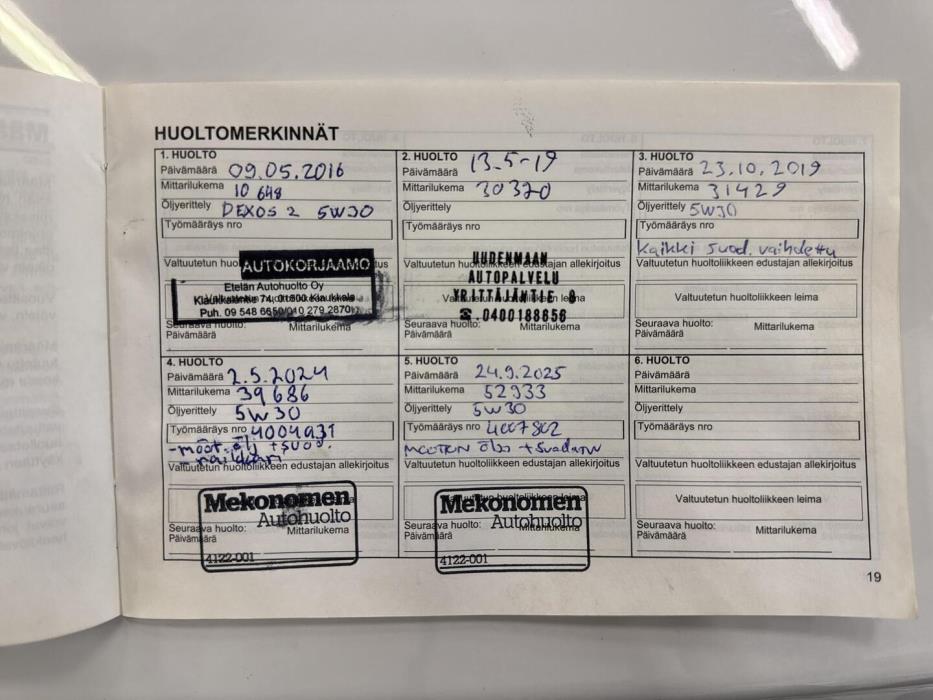 HUOLTOMERKINNÄT
1. HUOLTO
Päivämäärä 09.05.2016
Mittarilukema 10 648
Öljyerittely DEXOS 2 5W30
Työmääräys nro
Valtuutetun huoltoliikkeen edustajan allekirjoitus
AUTOKORJAAMO
Etelän Autohuolto Oy
Klaukkalantie 74, 01800 Klaukkala
Puh. 09 548 6650/010 279 2870
Seuraava huolto:
Päivämäärä
Mittarilukema
2. HUOLTO
Päivämäärä 13.5-19
Mittarilukema 30370
Öljyerittely
Työmääräys nro
Valtuutetun huoltoliikkeen edustajan allekirjoitus
UUDENMAAN
AUTOPALVELU
YRITTÄJÄNTIE 8
☎.0400188656
Seuraava huolto:
Päivämäärä
Mittarilukema
3. HUOLTO
Päivämäärä 23.10.2019
Mittarilukema 31429
Öljyerittely 5W30
Työmääräys nro
Kaikki suod. vaihdettu
Valtuutetun huoltoliikkeen edustajan allekirjoitus
Valtuutetun huoltoliikkeen leima
Seuraava huolto:
Päivämäärä
Mittarilukema
4. HUOLTO
Päivämäärä 2.5.2024
Mittarilukema 39686
Öljyerittely 5W30
Työmääräys nro 4004931
-moot.ölj +suod.
Valtuutetun huoltoliikkeen edustajan allekirjoitus
Mekonomen
Autohuolto
Seuraava huolto:
Päivämäärä
Mittarilukema
4122-001
5. HUOLTO
Päivämäärä 24.9.2025
Mittarilukema 52933
Öljyerittely 5W30
Työmääräys nro 4007802
Valtuutetun huoltoliikkeen edustajan allekirjoitus
Valtuutetun huoltoliikkeen leima
Mekonomen
Autohuolto
Seuraava huolto:
Päivämäärä
Mittarilukema
4122-001
6. HUOLTO
Päivämäärä
Mittarilukema
Öljyerittely
Työmääräys nro
Valtuutetun huoltoliikkeen edustajan allekirjoitus
Valtuutetun huoltoliikkeen leima
Seuraava huolto:
Päivämäärä
Mittarilukema
19